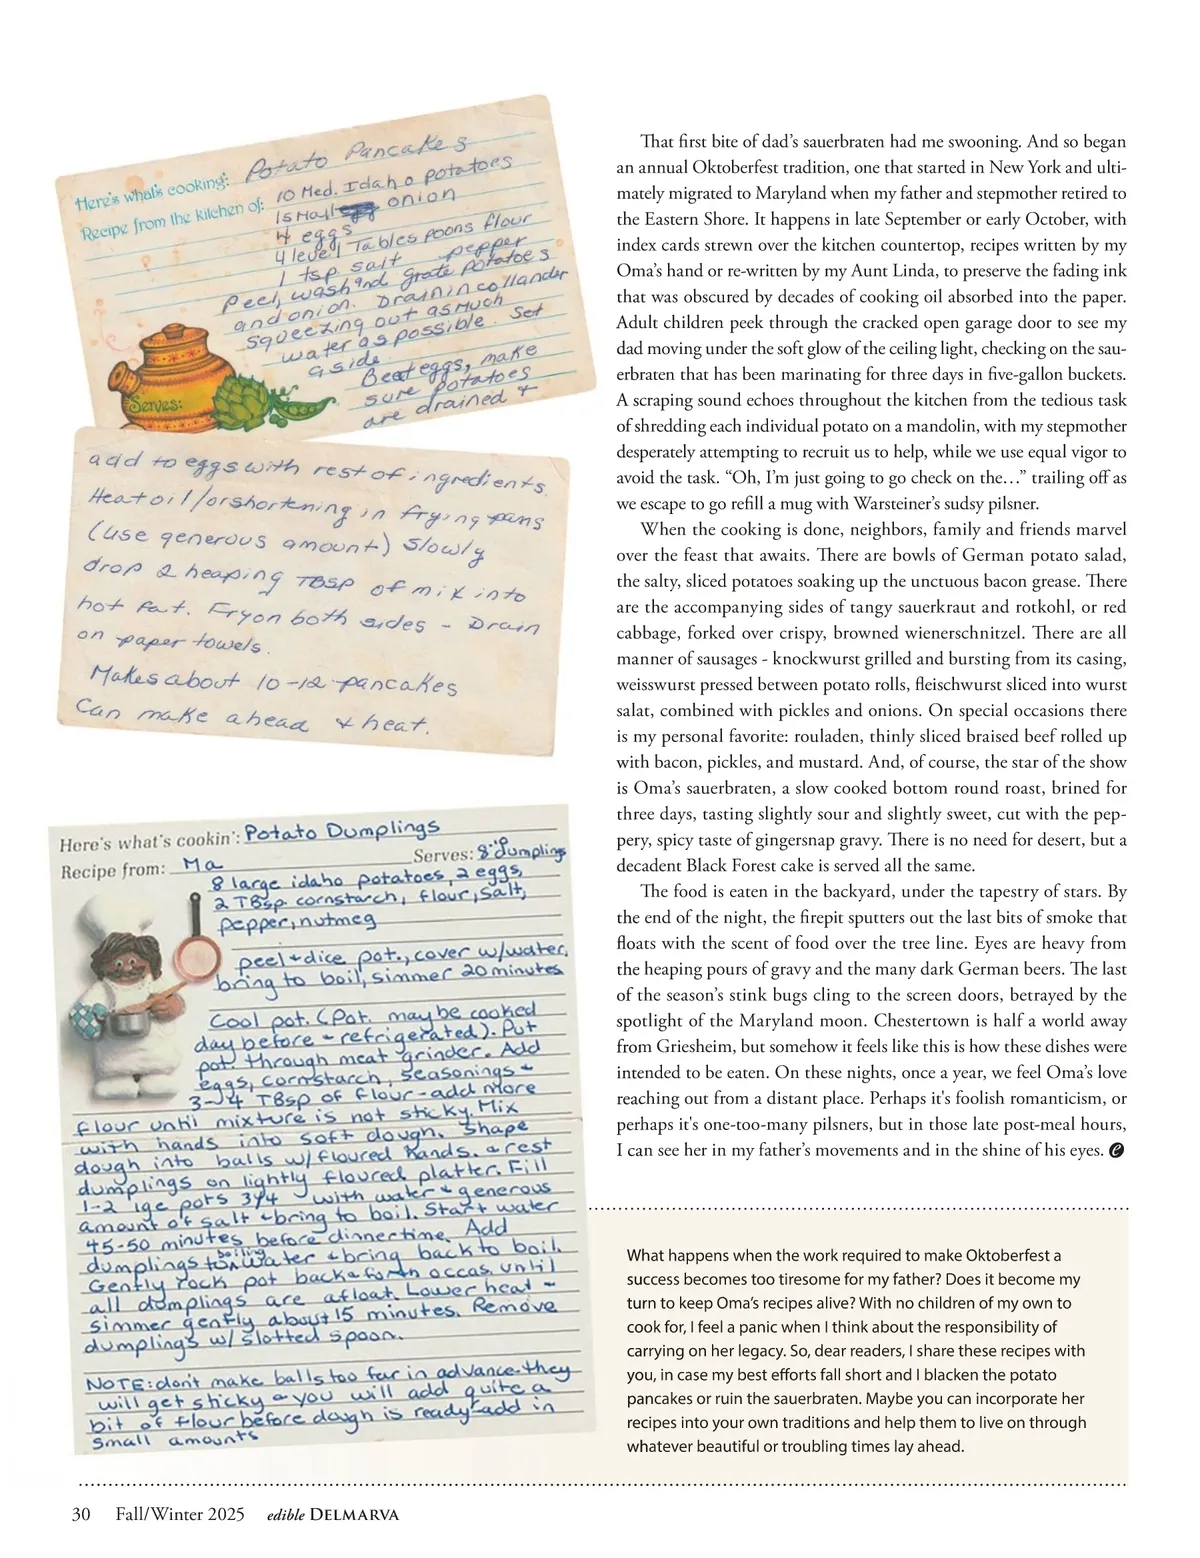 Here's what's cooking: Potato Pancakes
Recipe from the kitchen of: 10 Med. Idaho potatoes
1 small onion
4 eggs
4 level Tablespoons flour
1 tsp. salt pepper
Peel, wash and grate potatoes
and onion. Drain in collander
squeezing out as much
water as possible. Set
aside.
Beat eggs, make
sure potatoes
are drained +
Serves:
add to eggs with rest of ingredients.
Heat oil/or shortening in frying pans
(use generous amount) Slowly
drop 2 heaping TBSP of mix into
hot fat. Fry on both sides - Drain
on paper towels.
Makes about 10-12 pancakes
Can make ahead + heat.
Here's what's cookin': Potato Dumplings
Recipe from: Ma Serves: 8 Dumplings
8 large idaho potatoes, 2 eggs,
2 TBsp. cornstarch, flour, salt,
pepper, nutmeg
peel + dice pot., cover w/water,
bring to boil, simmer 20 minutes
Cool pot. (Pot. may be cooked
day before - refrigerated). Put
pot. through meat grinder. Add
eggs, cornstarch, seasonings +
3-4 TBsp of flour - add more
flour until mixture is not sticky. Mix
with hands into soft dough. Shape
dough into balls w/floured hands. + rest
dumplings on lightly floured platter. Fill
1-2 lge pots 3/4 with water + generous
amount of salt + bring to boil. Start water
45-50 minutes before dinnertime. Add
dumplings to boiling water + bring back to boil.
Gently rock pot back + forth occas. until
all dumplings are afloat. Lower heat -
simmer gently about 15 minutes. Remove
dumplings w/ slotted spoon.
NOTE: don't make balls too far in advance-they
will get sticky - you will add quite a
bit of flour before dough is ready-add in
small amounts
That first bite of dad's sauerbraten had me swooning. And so began
an annual Oktoberfest tradition, one that started in New York and ulti-
mately migrated to Maryland when my father and stepmother retired to
the Eastern Shore. It happens in late September or early October, with
index cards strewn over the kitchen countertop, recipes written by my
Oma's hand or re-written by my Aunt Linda, to preserve the fading ink
that was obscured by decades of cooking oil absorbed into the paper.
Adult children peek through the cracked open garage door to see my
dad moving under the soft glow of the ceiling light, checking on the sau-
erbraten that has been marinating for three days in five-gallon buckets.
A scraping sound echoes throughout the kitchen from the tedious task
of shredding each individual potato on a mandolin, with my stepmother
desperately attempting to recruit us to help, while we use equal vigor to
avoid the task. “Oh, I'm just going to go check on the…” trailing off as
we escape to go refill a mug with Warsteiner's sudsy pilsner.
When the cooking is done, neighbors, family and friends marvel
over the feast that awaits. There are bowls of German potato salad,
the salty, sliced potatoes soaking up the unctuous bacon grease. There
are the accompanying sides of tangy sauerkraut and rotkohl, or red
cabbage, forked over crispy, browned wienerschnitzel. There are all
manner of sausages - knockwurst grilled and bursting from its casing,
weisswurst pressed between potato rolls, fleischwurst sliced into wurst
salat, combined with pickles and onions. On special occasions there
is my personal favorite: rouladen, thinly sliced braised beef rolled up
with bacon, pickles, and mustard. And, of course, the star of the show
is Oma's sauerbraten, a slow cooked bottom round roast, brined for
three days, tasting slightly sour and slightly sweet, cut with the pep-
pery, spicy taste of gingersnap gravy. There is no need for desert, but a
decadent Black Forest cake is served all the same.
The food is eaten in the backyard, under the tapestry of stars. By
the end of the night, the firepit sputters out the last bits of smoke that
floats with the scent of food over the tree line. Eyes are heavy from
the heaping pours of gravy and the many dark German beers. The last
of the season's stink bugs cling to the screen doors, betrayed by the
spotlight of the Maryland moon. Chestertown is half a world away
from Griesheim, but somehow it feels like this is how these dishes were
intended to be eaten. On these nights, once a year, we feel Oma's love
reaching out from a distant place. Perhaps it's foolish romanticism, or
perhaps it's one-too-many pilsners, but in those late post-meal hours,
I can see her in my father's movements and in the shine of his eyes. e
What happens when the work required to make Oktoberfest a
success becomes too tiresome for my father? Does it become my
turn to keep Oma's recipes alive? With no children of my own to
cook for, I feel a panic when I think about the responsibility of
carrying on her legacy. So, dear readers, I share these recipes with
you, in case my best efforts fall short and I blacken the potato
pancakes or ruin the sauerbraten. Maybe you can incorporate her
recipes into your own traditions and help them to live on through
whatever beautiful or troubling times lay ahead.
30 Fall/Winter 2025 edible DELMARVA